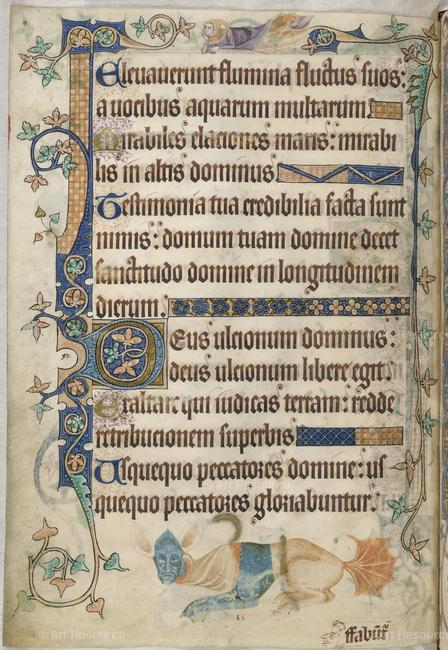 Eleuauerunt flumina fluctus suos:
a uocibus aquarum multarum.
Mirabiles elaciones maris: mirabi
lis in altis dominus
Testimonia tua credibilia facta sunt
nimis: domum tuam domine decet
sanctitudo domine in longitudinem
dierum.
Deus ulcionum dominus:
deus ulcionum libere egit.
Exaltare qui iudicas terram: redde
retribucionem superbis
Usquequo peccatores domine: us
quequo peccatores gloriabuntur.
ffabūt᷑
© Art Resource